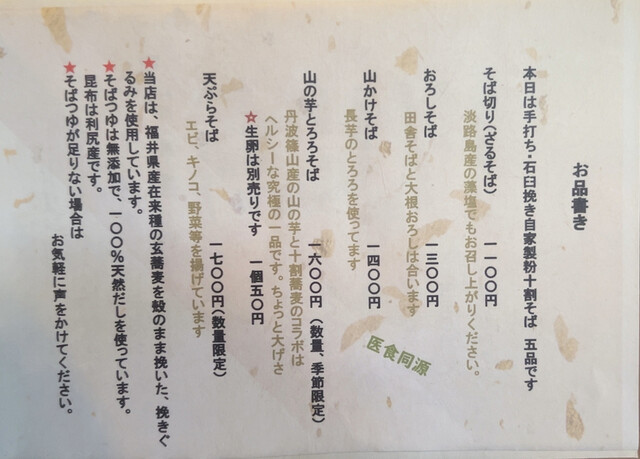 お品書き
本日は手打ち・石臼挽き自家製粉十割そば 五品です
そば切り(ざるそば) 一一〇〇円
淡路島産の藻塩でもお召し上がりください。
おろしそば 一三〇〇円
田舎そばと大根おろしは合います
山かけそば 一四〇〇円
長芋のとろろを使ってます
医食同源
山の芋とろろそば 一六〇〇円(数量、季節限定)
丹波篠山産の山の芋と十割蕎麦のコラボは
ヘルシーな究極の一品です。ちょっと大げさ
☆生卵は別売りです 一個五〇円
天ぷらそば 一七〇〇円(数量限定)
エビ、キノコ、野菜等を揚げています
★当店は、福井県産在来種の玄蕎麦を殻のまま挽いた、挽きぐ
るみを使用しています。
★そばつゆは無添加で、一〇〇%天然だしを使っています。
昆布は利尻産です。
★そばつゆが足りない場合は
お気軽に声をかけてください。